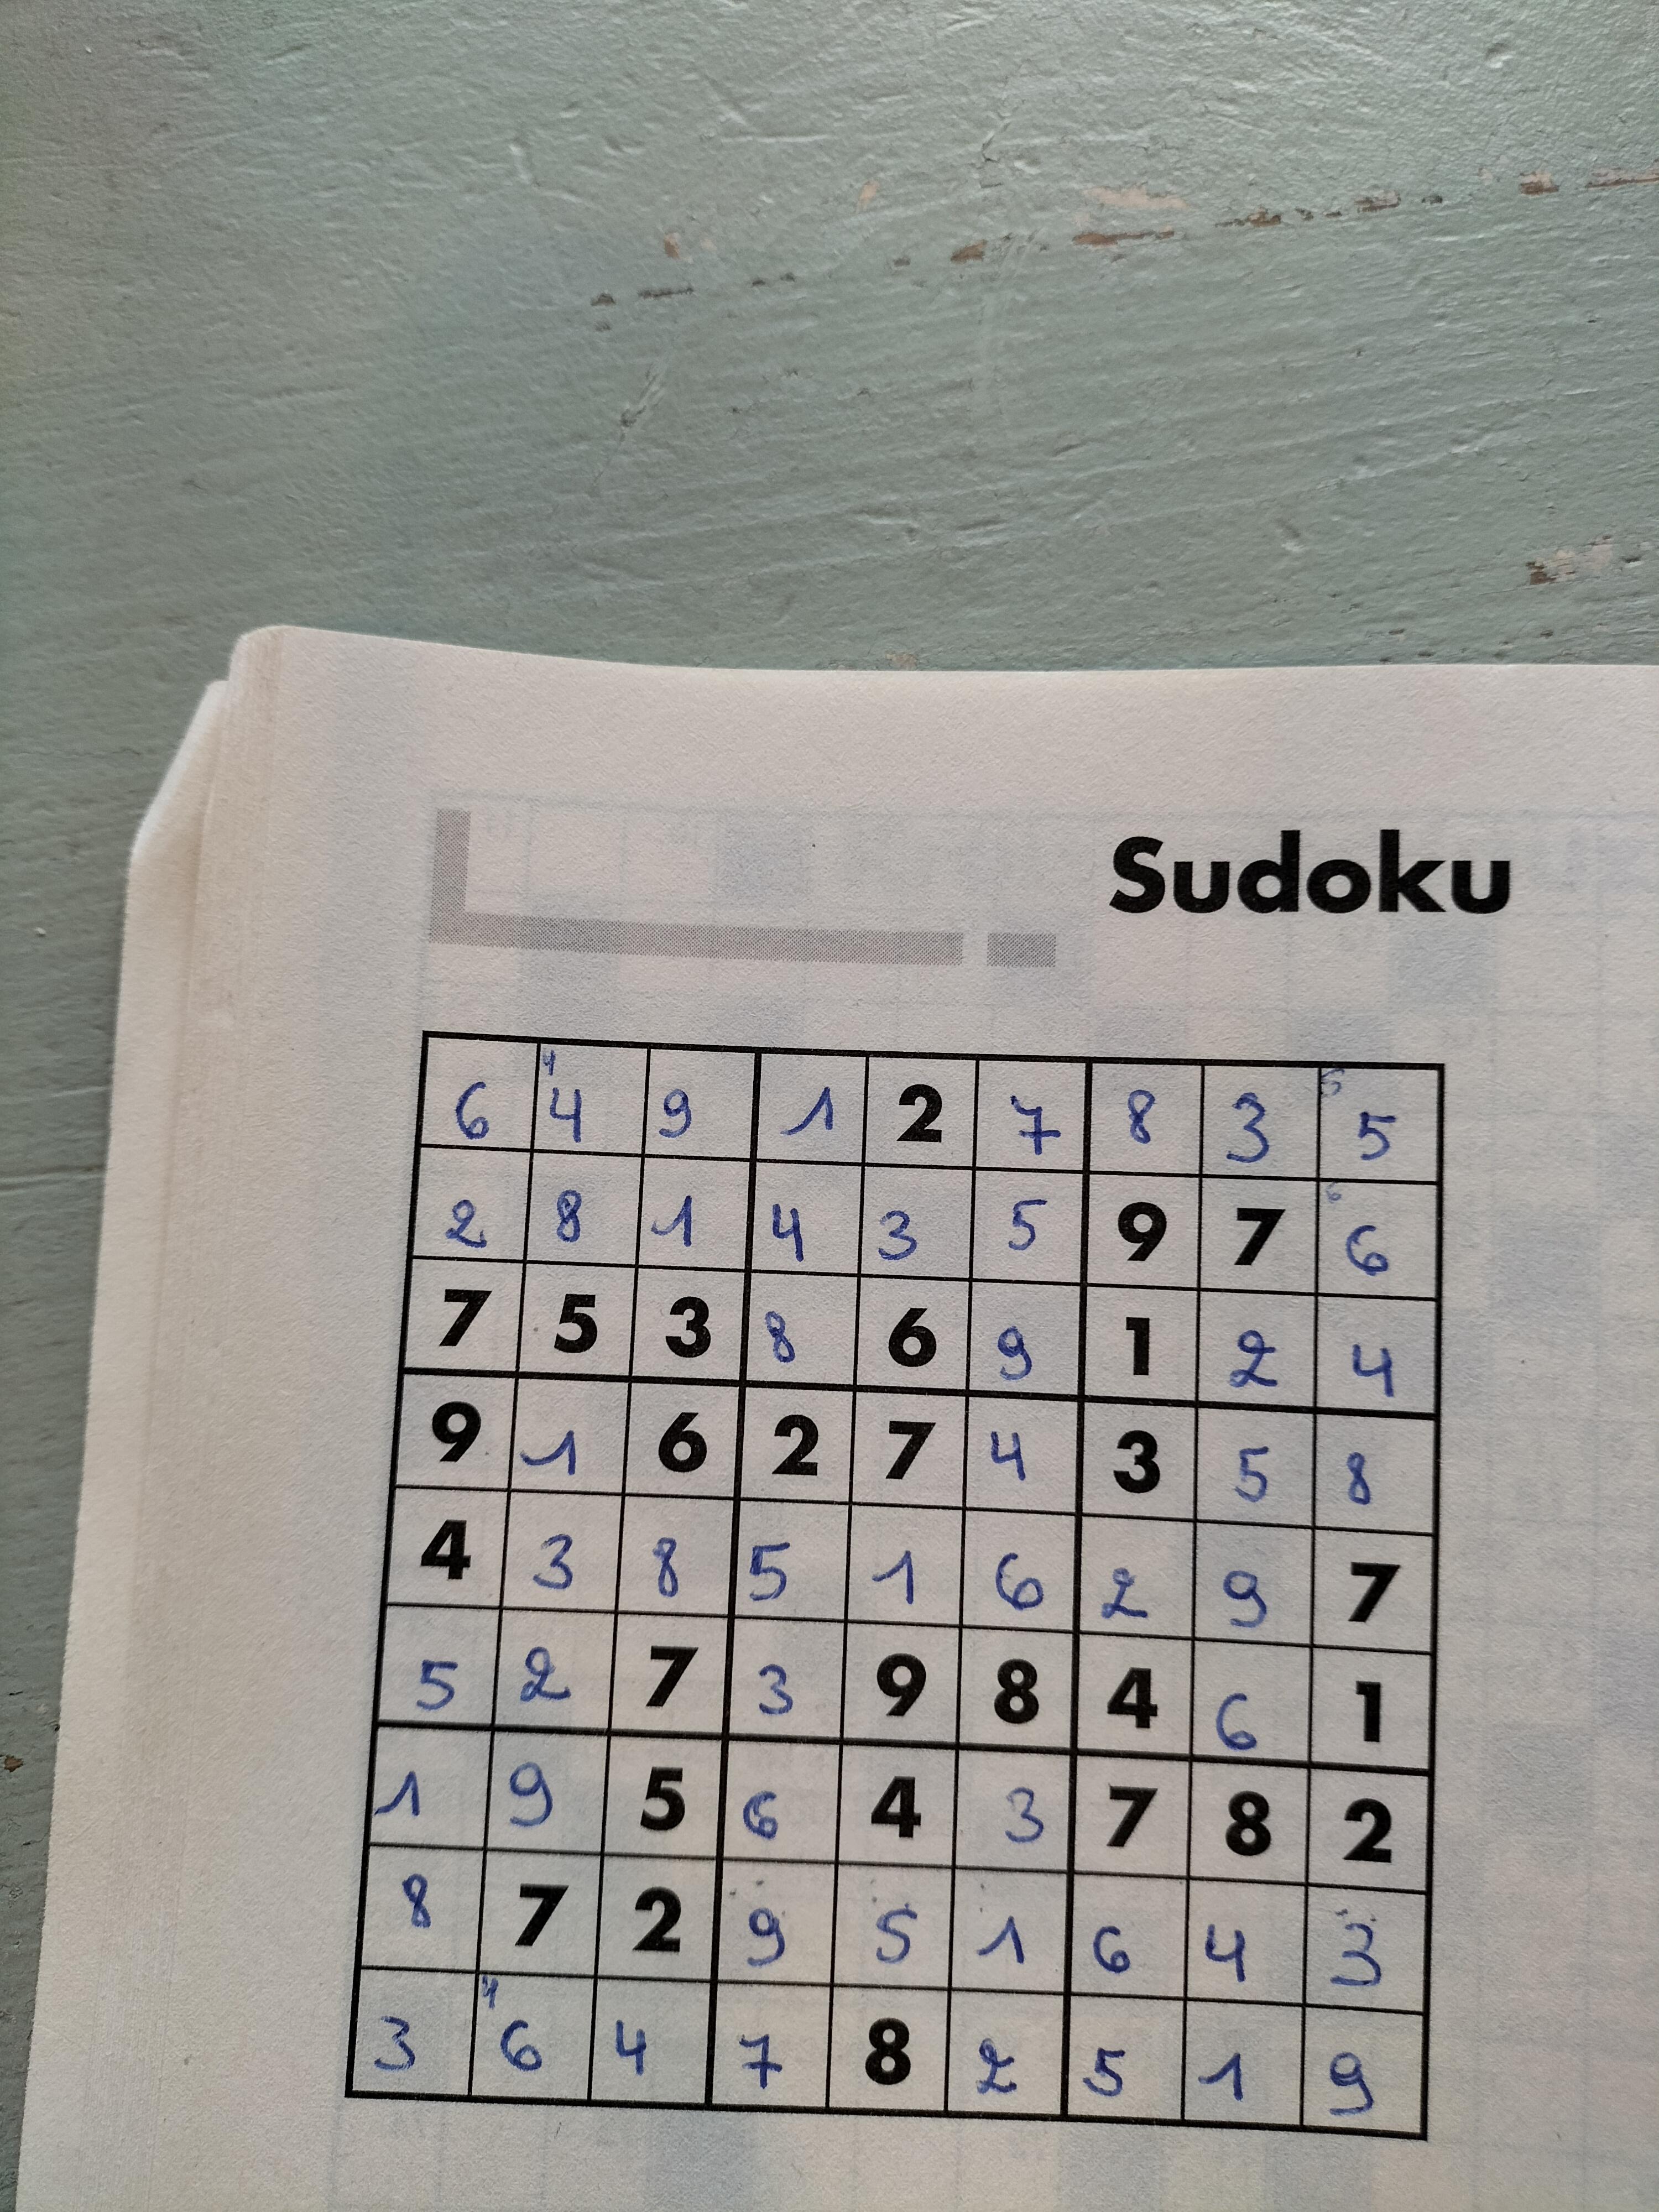 Sudoku
6 4 9 1 2 7 8 3 5
2 8 1 4 3 5 9 7 6
7 5 3 8 6 9 1 2 4
9 1 6 2 7 4 3 5 8
4 3 8 5 1 6 2 9 7
5 2 7 3 9 8 4 6 1
1 9 5 6 4 3 7 8 2
8 7 2 9 5 1 6 4 3
3 6 4 7 8 2 5 1 9